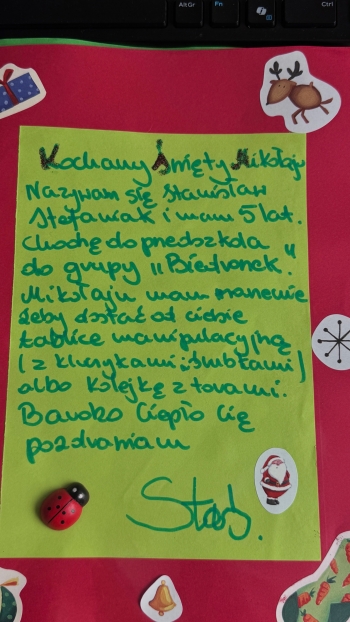 AltGr Fn Ctrl
Kochany Święty Mikołaju
Nazywam się Stanisław
Stefaniak i mam 5 lat.
Chodzę do przedszkola
do grupy "Biedronek".
Mikołaju mam marzenie
żeby dostać od ciebie
tablicę manipulacyjną
(z kluczykami i śrubkami)
albo kolejkę z torami.
Bardzo ciepło Cię
pozdrawiam
Staś.